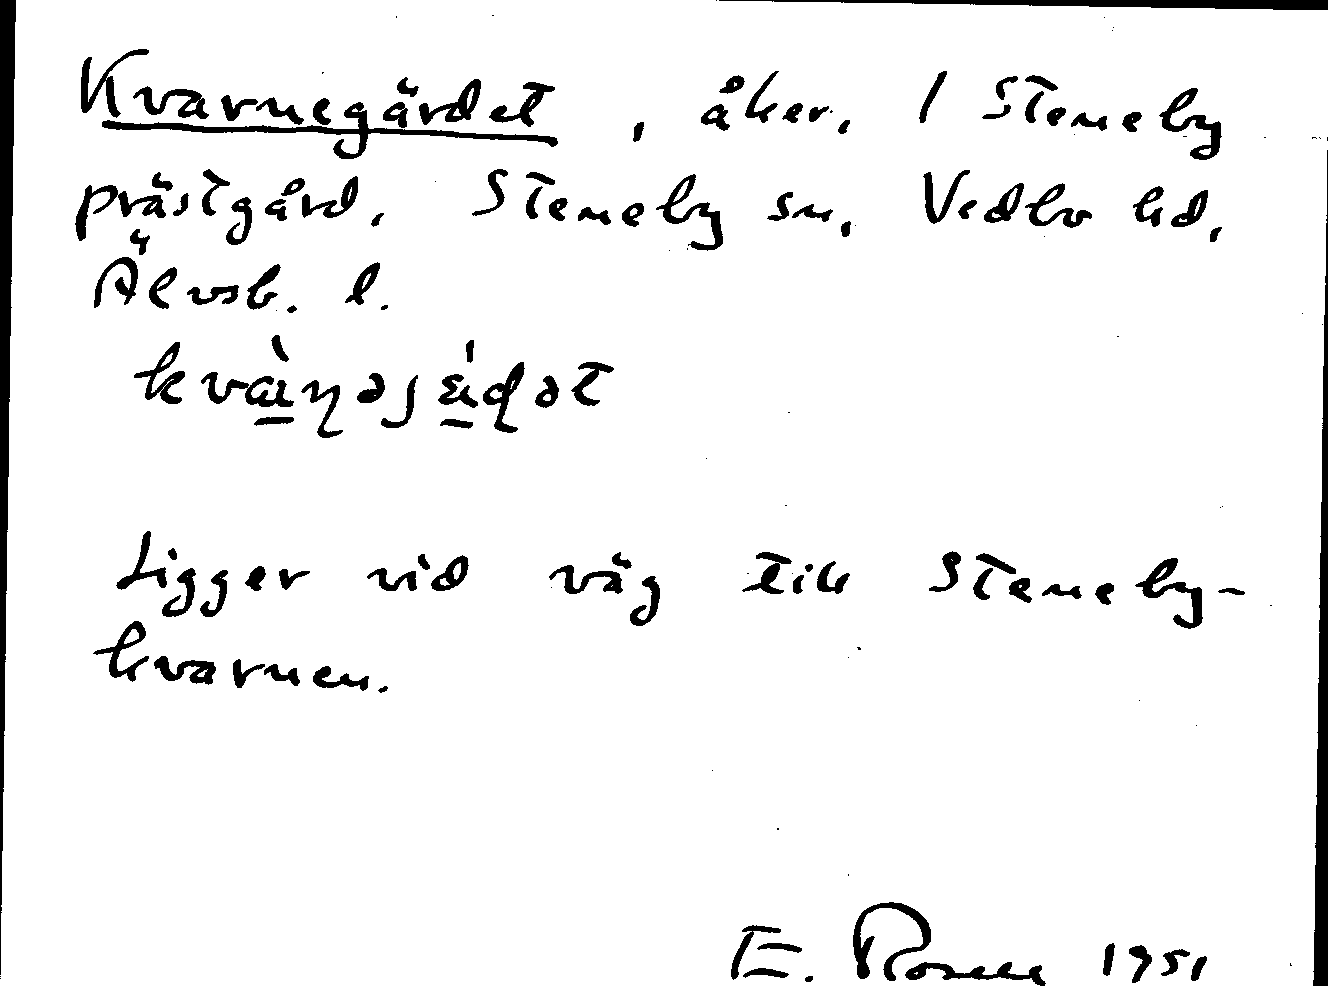 Kvarnegärdet, åker, 1 Steneby
prästgård, Steneby sn, Vedbo hd,
Älvsb. l.
Ligger vid väg till Steneby-
kvarnen.
E. 1951